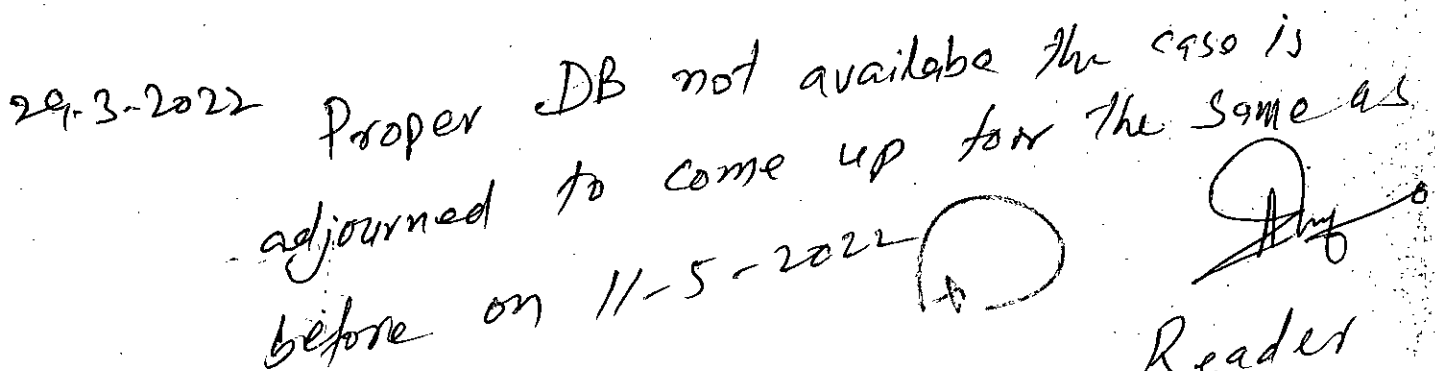 29-3-2022 Proper DB not availabe the case is
adjourned to come up for the same as
before on 11-5-2022
Reader